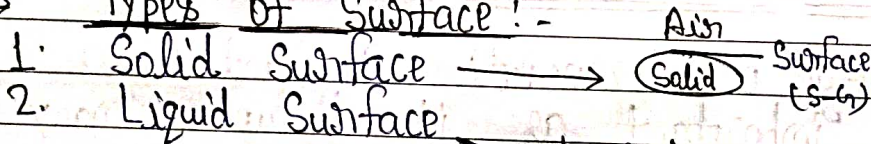 Types of Surface :-
Air
1. Solid Surface → Solid Surface
(S-G)
2. Liquid Surface